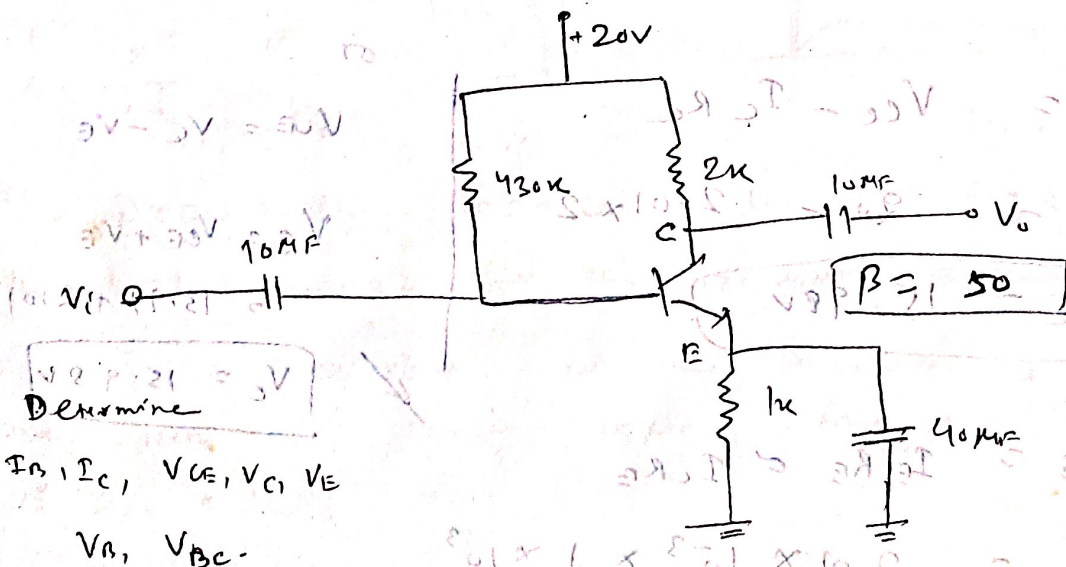 +20V
430K
2K
10MF
C
Vo
10MF
Vi
β = 50
E
1K
40MF
Determine
IB, IC, VCE, VC, VE
VB, VBC.